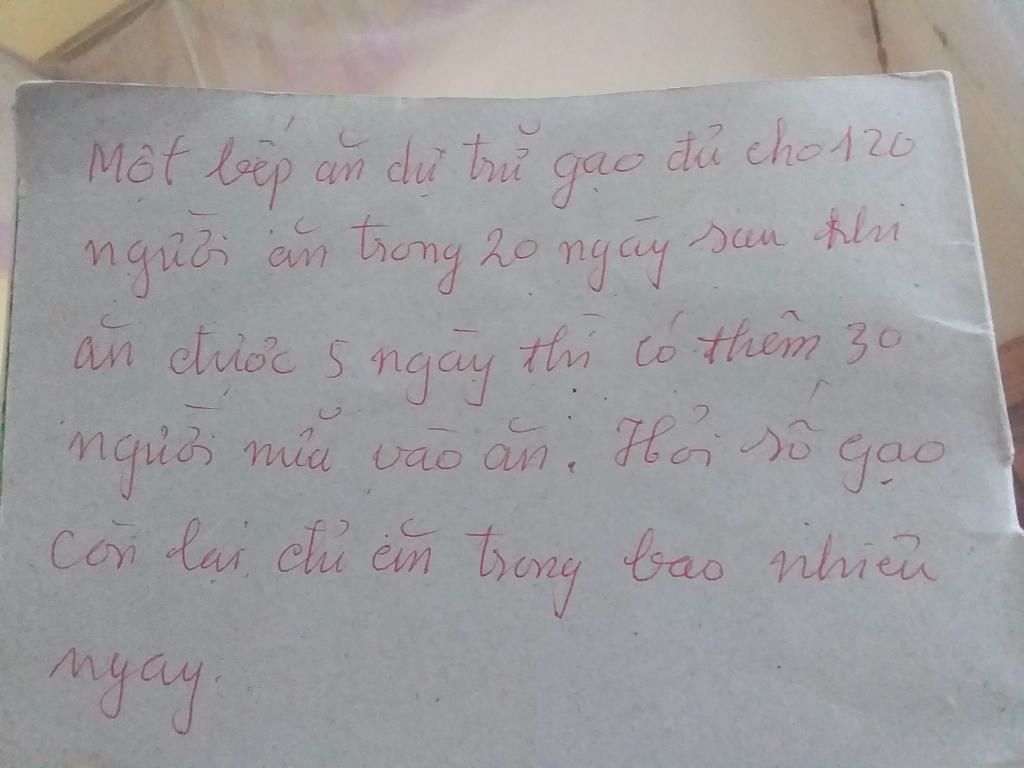 Một bếp ăn dự trữ gạo đủ cho 120
người ăn trong 20 ngày sau khi
ăn được 5 ngày thì có thêm 30
người nữa vào ăn. Hỏi số gạo
còn lại đủ ăn trong bao nhiêu
ngay.